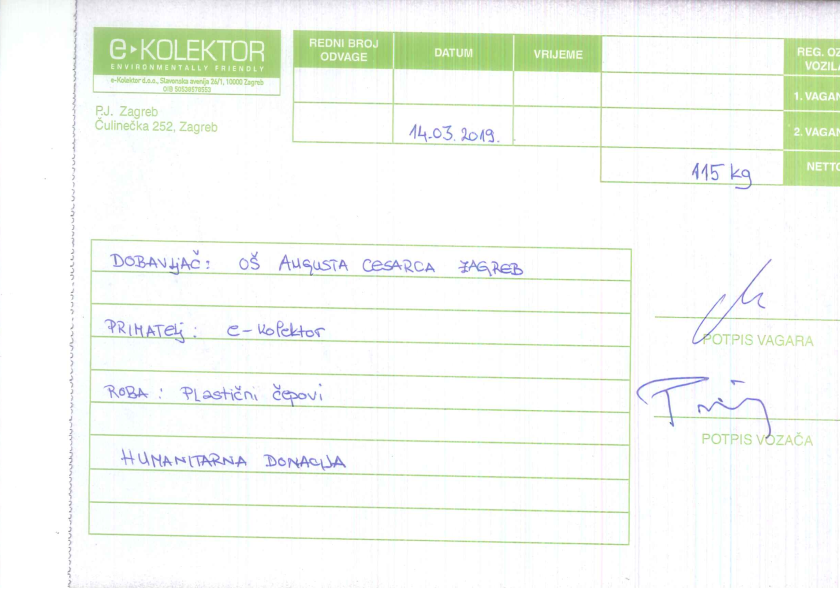 e-KOLEKTOR
ENVIRONMENTALLY FRIENDLY
e-Kolektor d.o.o., Slavonska avenija 26/1, 10000 Zagreb
OIB 50538578553
P.J. Zagreb
Čulinečka 252, Zagreb
REDNI BROJ
ODVAGE
DATUM
VRIJEME
REG. OZ
VOZILA
1. VAGAN
2. VAGAN
14.03.2019.
115 kg
NETTO
DOBAVLJAČ: OŠ AUGUSTA CESARCA ZAGREB
PRIMATELJ: e-Kolektor
ROBA: Plastični čepovi
HUMANITARNA DONACIJA
POTPIS VAGARA
POTPIS VOZAČA